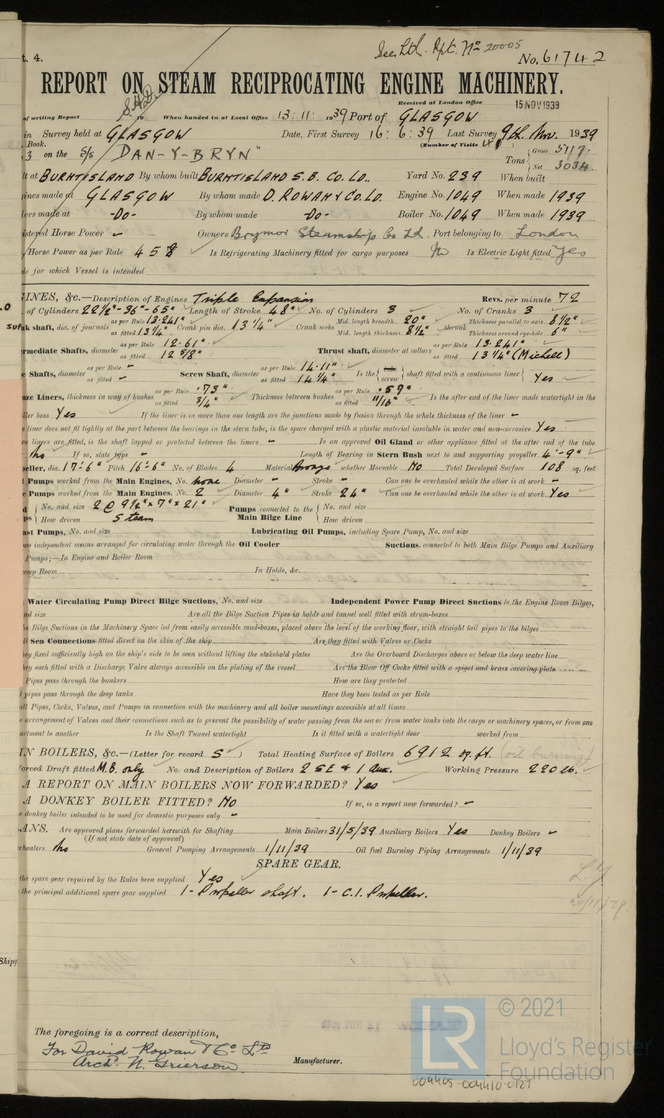 t. 4.
See Ldl. Rpt. No 20005
No. 61742
REPORT ON STEAM RECIPROCATING ENGINE MACHINERY.
Received at London Office 15 NOV 1939
of writing Report to When handed in at Local Office 13:11: 1939 Port of GLASGOW
in Survey held at GLASGOW Date, First Survey 16:6:39 Last Survey 9th Nov. 1939
Book. (Number of Visits
3 on the S/S "DAN-Y-BRYN" Tons Gross 5117. Net 3034
lt at BURNTISLAND By whom built BURNTISLAND S.B. CO. LD. Yard No. 239 When built
ines made at GLASGOW By whom made D. ROWAN & CO. LD. Engine No. 1049 When made 1939
ers made at -Do- By whom made -Do- Boiler No. 1049 When made 1939
stered Horse Power – Owners Brymor Steamship Co Ld. Port belonging to London
Horse Power as per Rule 458 Is Refrigerating Machinery fitted for cargo purposes No Is Electric Light fitted Yes
de for which Vessel is intended
INES, &c.—Description of Engines Triple Expansion Revs. per minute 72
of Cylinders 22½"-36"-65" Length of Stroke 48" No. of Cylinders 3 No. of Cranks 3
nk shaft, dia. of journals as per Rule 13.241" as fitted 13¼" Crank pin dia. 13¼" Crank webs Mid. length breadth 20" Mid. length thickness 8½" shrunk Thickness parallel to axis 8½" Thickness around eye-hole 6"
ermediate Shafts, diameter as per Rule 12.61" as fitted 12⅝" Thrust shaft, diameter at collars as per Rule 13.241" as fitted 13¼" (Michell)
e Shafts, diameter as per Rule – as fitted – Screw Shaft, diameter as per Rule 14.11" as fitted 14¼" Is the screw shaft fitted with a continuous liner Yes
nze Liners, thickness in way of bushes as per Rule .73" as fitted ¾" Thickness between bushes as per Rule .57" as fitted 11/16" Is the after end of the liner made watertight in the
ller boss Yes If the liner is in more than one length are the junctions made by fusion through the whole thickness of the liner –
e liner does not fit tightly at the part between the bearings in the stern tube, is the space charged with a plastic material insoluble in water and non-corrosive Yes
wo liners are fitted, is the shaft lapped or protected between the liners – Is an approved Oil Gland or other appliance fitted at the after end of the tube
No If so, state type – Length of Bearing in Stern Bush next to and supporting propeller 4'-9"
peller, dia. 17'-6" Pitch 16'-6" No. of Blades 4 Material Bronze whether Moveable No Total Developed Surface 108 sq. feet
Pumps worked from the Main Engines, No. None Diameter – Stroke – Can one be overhauled while the other is at work –
e Pumps worked from the Main Engines, No. 2 Diameter 4" Stroke 24" Can one be overhauled while the other is at work Yes
No. and size 2 @ 9½" x 7" x 21" Pumps connected to the No. and size
How driven Steam Main Bilge Line How driven
ast Pumps, No. and size Lubricating Oil Pumps, including Spare Pump, No. and size
wo independent means arranged for circulating water through the Oil Cooler Suctions, connected to both Main Bilge Pumps and Auxiliary
Pumps;—In Engine and Boiler Room
ump Room In Holds, &c.
Water Circulating Pump Direct Bilge Suctions, No. and size Independent Power Pump Direct Suctions to the Engine Room Bilges,
nd size Are all the Bilge Suction Pipes in holds and tunnel well fitted with strum-boxes
he Bilge Suctions in the Machinery Space led from easily accessible mud-boxes, placed above the level of the working floor, with straight tail pipes to the bilges
ll Sea Connections fitted direct on the skin of the ship Are they fitted with Valves or Cocks
hey fixed sufficiently high on the ship's side to be seen without lifting the stokehold plates Are the Overboard Discharges above or below the deep water line
hey each fitted with a Discharge Valve always accessible on the plating of the vessel Are the Blow Off Cocks fitted with a spigot and brass covering plate
Pipes pass through the bunkers How are they protected
pipes pass through the deep tanks Have they been tested as per Rule
ll Pipes, Cocks, Valves, and Pumps in connection with the machinery and all boiler mountings accessible at all times
e arrangement of Valves and their connections such as to prevent the possibility of water passing from the sea or from water tanks into the cargo or machinery spaces, or from one
artment to another Is the Shaft Tunnel watertight Is it fitted with a watertight door worked from
IN BOILERS, &c.—(Letter for record S) Total Heating Surface of Boilers 6912 sq. ft. (oil burning)
orced Draft fitted M.B. only No. and Description of Boilers 2 SE & 1 Aux. Working Pressure 220 lb.
A REPORT ON MAIN BOILERS NOW FORWARDED? Yes
A DONKEY BOILER FITTED? No If so, is a report now forwarded? –
e donkey boiler intended to be used for domestic purposes only –
ANS. Are approved plans forwarded herewith for Shafting Main Boilers 31/5/39 Auxiliary Boilers Yes Donkey Boilers –
(If not state date of approval)
rheaters No General Pumping Arrangements 1/11/39 Oil fuel Burning Piping Arrangements 1/11/39
SPARE GEAR.
the spare gear required by the Rules been supplied Yes
the principal additional spare gear supplied 1 - Propeller shaft. 1 - C.I. Propeller.
20/11/39
The foregoing is a correct description,
For David Rowan & Co Ld
Archd. N. Grierson
Manufacturer.
LR
© 2021
Lloyd's Register
Foundation
004405-004410-0127